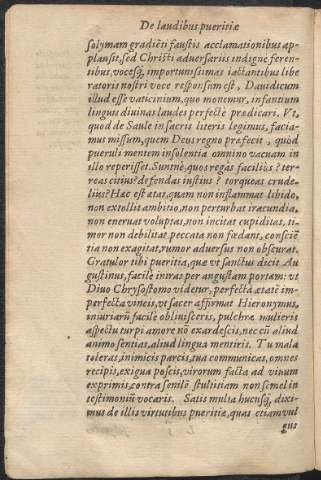 De laudibus pueritiæ
solymam gradiẽti faustis acclamationibus ap-
plausit, sed Christi adversariis indignè feren-
tibus vocesq́; importunissimas iactantibus libe
ratoris nostri voce responsum est, Davidicum
illud esse vaticinium, quo monemur, infantium
linguis divinas laudes perfectè prædicari. Vt,
quod de Saule in sacris literis legimus, facia-
mus missum, quem Deus regno præfecit, quòd
pueruli mentem insolentia omnino vacuam in
illo reperisset. Sunnè, quos regas facilius? ter-
reas citius? defendas iustius? torqueas crude-
lius? Hæc est ætas, quam non inflammat libido,
non extollit ambitio, non perturbat iracundia,
non enervat voluptas, non incitat cupiditas, ti-
mor non debilitat, peccata non fœdant, consciẽ
tia non exagitat, rumor adversus non obscurat.
Gratulor tibi pueritia, quæ vt sanctus dicit Au
gustinus, facilè intras per angustam portam: vt
Divo Chrysostomo videtur, perfectã ætatẽ im-
perfecta vincis, vt sacer affirmat Hieronymus,
iniuriarũ facilè oblivisceris, pulchræ mulieris
aspectu turpi amore nõ exardescis, nec cũ aliud
animo sentias, aliud lingua mentiris. Tu mala
toleras, inimicis parcis, tua communicas, omnes
recipis, exigua poscis, virorum facta ad vivum
exprimis, contra senilẽ stultitiam non semel in
testimoniũ vocaris. Satis multa hucusq́; dixi-
mus de illis virtutibus pueritiæ, quas etiamvul
gus